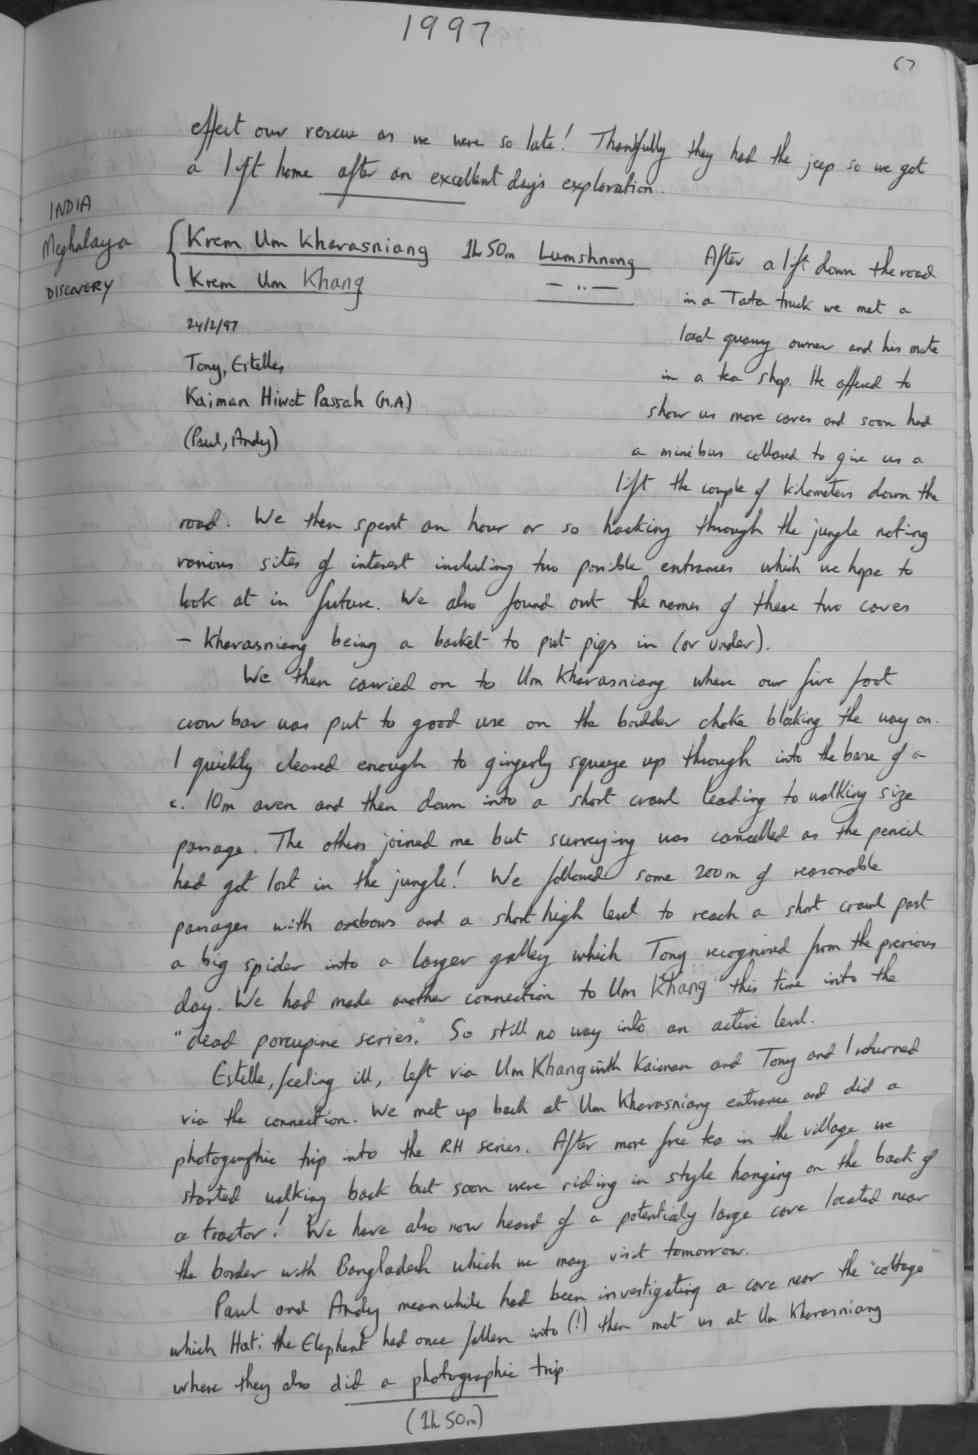 1997
67
effect our rescue as we were so late! Thankfully they had the jeep so we got
a lift home after an excellent day's exploration.
INDIA
Meghalaya
DISCOVERY
Krem Um Kharasniang 1h 50m Lumshnong
Krem Um Khang — ,, —
24/2/97
Tony, Estelle,
Kaiman Hiwot Passah (M.A)
(Paul, Andy)
After a lift down the road
in a Tata truck we met a
local quarry owner and his mate
in a tea shop. He offered to
show us more caves and soon had
a minibus collared to give us a
lift the couple of kilometers down the
road. We then spent an hour or so hacking through the jungle noting
various sites of interest including two possible entrances which we hope to
look at in future. We also found out the names of these two caves
- Kharasniang being a basket to put pigs in (or under).
We then carried on to Um Kharasniang where our five foot
crow bar was put to good use on the boulder choke blocking the way on.
I quickly cleared enough to gingerly squeeze up through into the base of a
c. 10m aven and then down into a short crawl leading to walking size
passage. The others joined me but surveying was cancelled as the pencil
had got lost in the jungle! We followed some 200m of reasonable
passages with oxbows and a short high level to reach a short crawl past
a big spider into a larger gallery which Tony recognised from the previous
day. We had made another connection to Um Khang this time into the
"dead porcupine series." So still no way into an active level.
Estelle, feeling ill, left via Um Khang with Kaiman and Tony and I returned
via the connection. We met up back at Um Kharasniang entrance and did a
photographic trip into the RH series. After more free tea in the village we
started walking back but soon were riding in style hanging on the back of
a tractor! We have also now heard of a potentialy large cave located near
the border with Bangladesh which we may visit tomorrow.
Paul and Andy meanwhile had been investigating a cave near the "cottage"
which Hati the Elephant had once fallen into (!) then met us at Um Kharasniang
where they also did a photographic trip
(1h 50m)